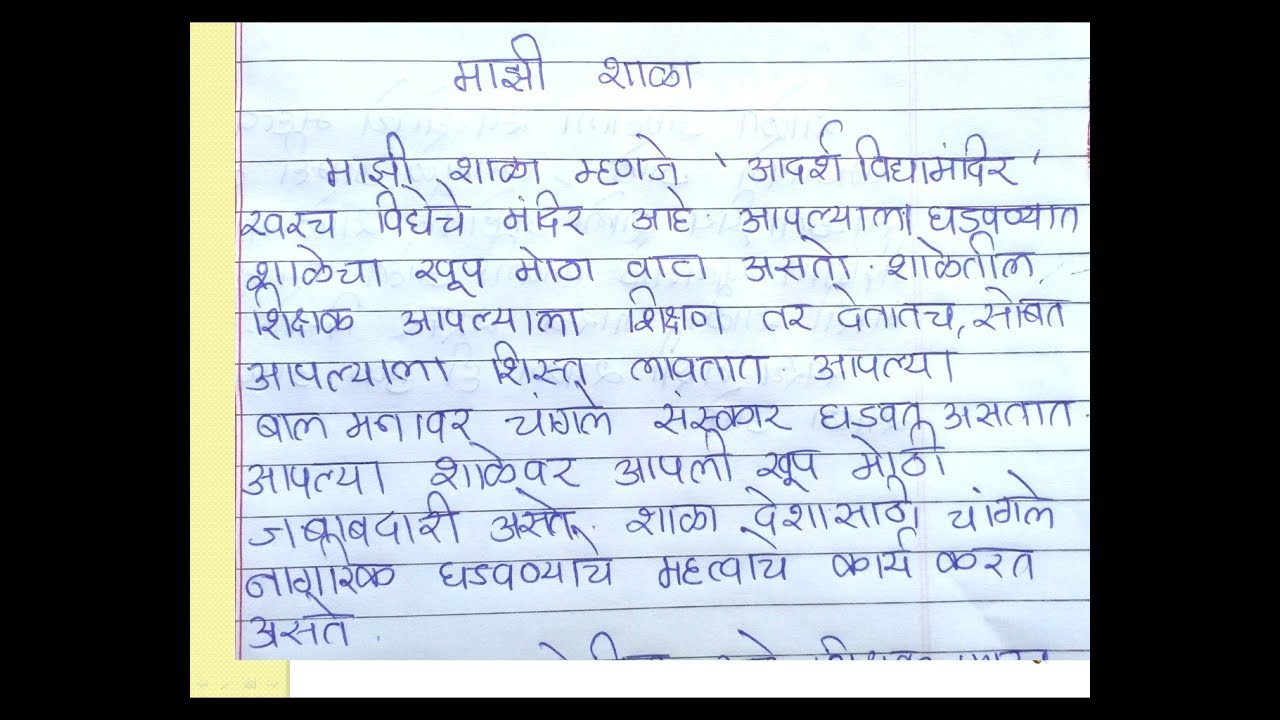 माझी शाळा
माझी शाळा म्हणजे ' आदर्श विद्यामंदिर '
खरंच विद्येचे मंदिर आहे. आपल्याला घडवण्यात
शाळेचा खूप मोठा वाटा असतो. शाळेतील
शिक्षक आपल्याला शिक्षण तर देतातच, सोबत
आपल्याला शिस्त लावतात. आपल्या
बाल मनावर चांगले संस्कार घडवत असतात.
आपल्या शाळेवर आपली खूप मोठी
जबाबदारी असते. शाळा देशासाठी चांगले
नागरिक घडवण्याचे महत्वाचे कार्य करत
असते.